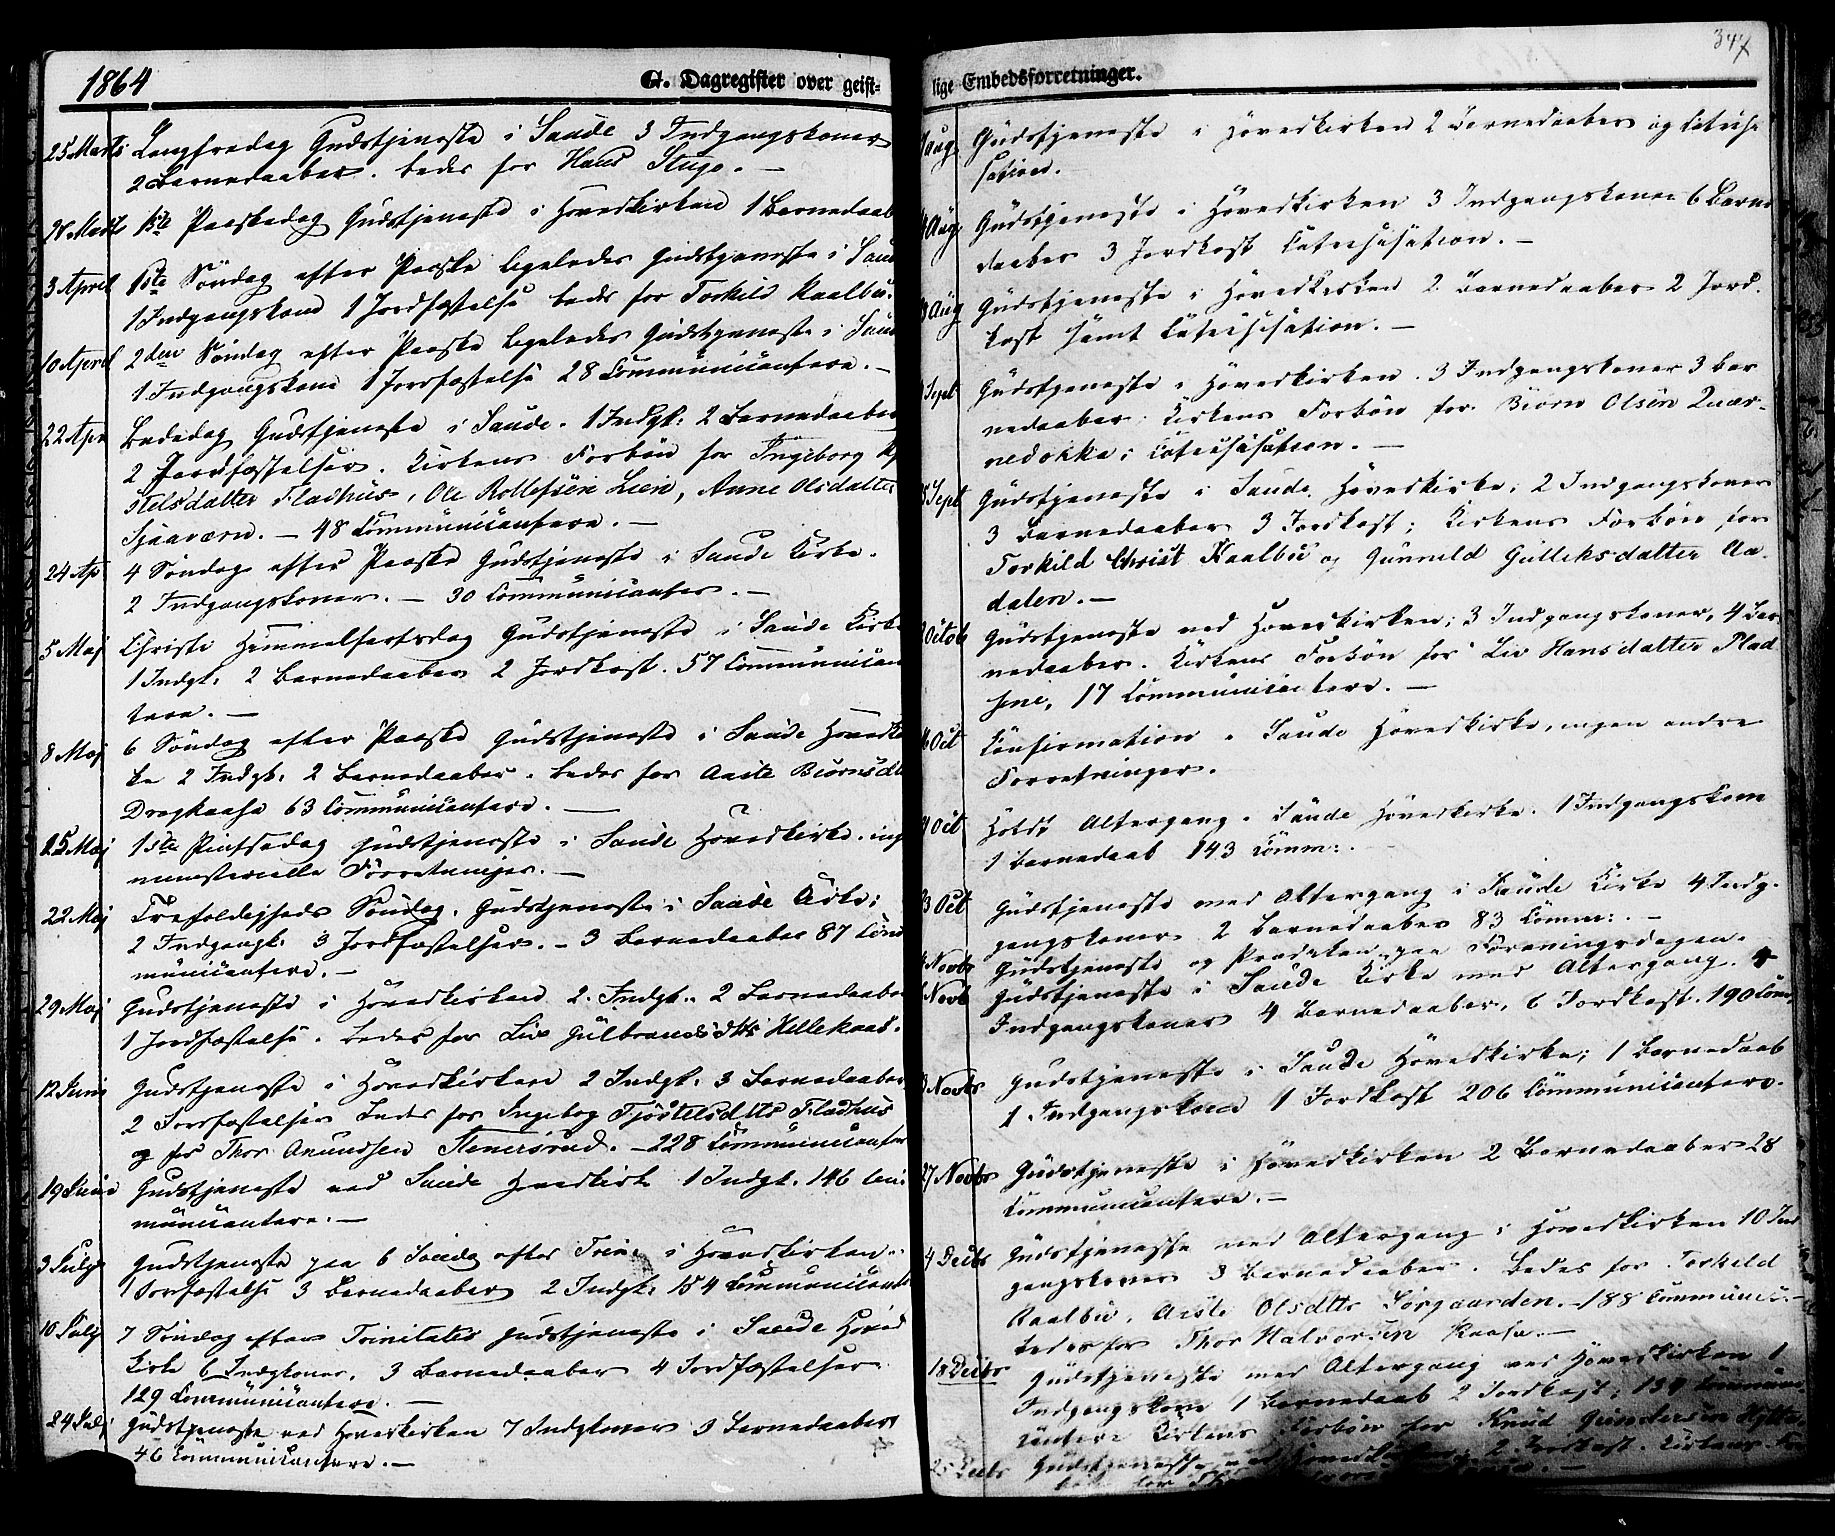 1864
G. Dagregister over geist-
25 Marts Langfredag Gudstjeneste i Saude 3 Indgangskoner
2 Barnedaaber. bedes for Hans Stugo. —
28 Marts 1ste Paaskedag Gudstjeneste i Hovedkirken 1 Barnedaab
3 April 1ste Söndag efter Paaske ligeledes Gudstjeneste i Saude
1 Indgangskone 1 Jordfæstelse bedes for Torkild Kaalbu.
10 April 2den Söndag efter Paaske ligeledes Gudstjeneste i Saude
1 Indgangskone 1 Jordfæstelse 28 Communicantere. —
22 Apr Bededag Gudstjeneste i Saude. 1 Indgk: 2 Barnedaaber
2 Jordfæstelser. Kirkens Forbön for Ingeborg Kj
stelsdatter Fladhus, Ole Rollefsen Lien, Anne Olsdatter
— 48 Communicantere. —
24 Ap 4 Söndag efter Paaske Gudstjeneste i Saude Kirke.
2 Indgangskoner. — 30 Communicanter. —
5 Maj Christi Himmelfartsdag Gudstjeneste i Saude Kirke
1 Indgk: 2 Barnedaaber 2 Jordkast. 57 Communican
tere. —
8 Maj 6 Söndag efter Paaske Gudstjeneste i Saude Hovedkir
ke 2 Indgk: 2 Barnedaaber. bedes for Aaste Biörnsdt
63 Communicantere. —
15 Maj 1ste Pintsedag Gudstjeneste i Saude Hovedkirke. ing
ministerielle Forretninger. —
22 Maj Trefoldigheds Söndag. Gudstjeneste i Saude Kirke;
2 Indgangk: 3 Jordfæstelser. — 3 Barnedaaber 87 Com
municantere. —
29 Maj Gudstjeneste i Hovedkirken 2 Indgk: 2 Barnedaaber
1 Jordfæstelse. bedes for Liv Gulbrandsdtr Hellekaas.
12 Juni Gudstjeneste i Hovedkirken 2 Indgk: 3 Barnedaaber
2 Jordfæstelser bedes for Ingebog Tjöstelsdtr Fladhus
og for Thor Anundsen Stenersrud. — 228 Communicanter
19 Juni Gudstjeneste ved Saude Hovedkirke 1 Indgk. 146 Com
municantere. —
3 July Gudstjeneste paa 6 Sönda efter Trin: i Hovedkirken.
1 Jordfæstelse 3 Barnedaaber 2 Indgk: 154 Communicante
10 July 7 Söndag efter Trinitatis Gudstjeneste i Saude Hoved
Kirke 6 Indgkoner, 3 Barnedaaber 4 Jordfæstelser
129 Communicantere. —
24 July Gudstjeneste ved Hovedkirken 7 Indgkoner 3 Barnedaaber
46 Communicantere. —
347
lige Embedsforretninger.
Aug. Gudstjeneste i Hovedkirken 2 Barnedaaber og Catechi
sation.
Aug. Gudstjeneste i Hovedkirken 3 Indgangskoner 6 Barne
daaber 3 Jordkast Catechisation. —
Aug Gudstjeneste i Hovedkirken 2 Barnedaaber 2 Jord.
kast samt Catechisation. —
Sept Gudstjeneste i Hovedkirken. 3 Indgangskoner 3 Bar
nedaaber; Kirkens Forbön for Biörn Olsen Quær-
nedokka; Catechisation. —
Sept Gudstjeneste i Saude Hovedkirke; 2 Indgangskoner
3 Barnedaaber 3 Jordkast; Kirkens Forbön for
Torkild Christ Kaalbu og Gunnild Gulleksdatter Aa-
dalen. —
Octob Gudstjeneste ved Hovedkirken; 3 Indgangskoner, 4 Bar
nedaaber. Kirkens Forbön for Liv Hansdatter Plad
sene, 17 Communicantere. —
Oct Confirmation i Saude Hovedkirke, ingen andre
Forretninger.
Oct Holdt Altergang i Saude Hovedkirke. 1 Indgangskone
1 Barnedaab 143 Comm: .
3 Oct Gudstjeneste med Altergang i Saude Kirke 4 Indg-
gangskoner 2 Barnedaaber 83 Comm: . —
Novbr Gudstjeneste og Prædiken paa Foreningsdagen.
Novb Gudstjeneste i Saude Kirke med Altergang. 4
Indgangskoner 4 Barnedaaber, 6 Jordkast. 190 Com
Novbr Gudstjeneste i Saude Hovedkirke; 1 Barnedaab
1 Indgangskone 1 Jordkast 206 Communicantere.
27 Novbr Gudstjeneste i Hovedkirken 2 Barnedaaber 28
Communicantere. —
4 Decbr Gudstjeneste med Altergang i Hovedkirken 10 Ind
gangskoner 3 Barnedaaber. Bedes for Torkild
Kaalbu, Aaste Olsdtr Sörgaarden. — 188 Communic. —
bedes for Thor Halvorsen Kaasa. —
18 Decbr Gudstjeneste med Altergang ved Hovedkirken 1
Indgangskone 1 Barnedaab 2 Jordkast;
Kirkens Forbön for Knud Gundersen
Decbr Gudstjeneste ved Hovedkirken; 2 Jordkast. Kirkens